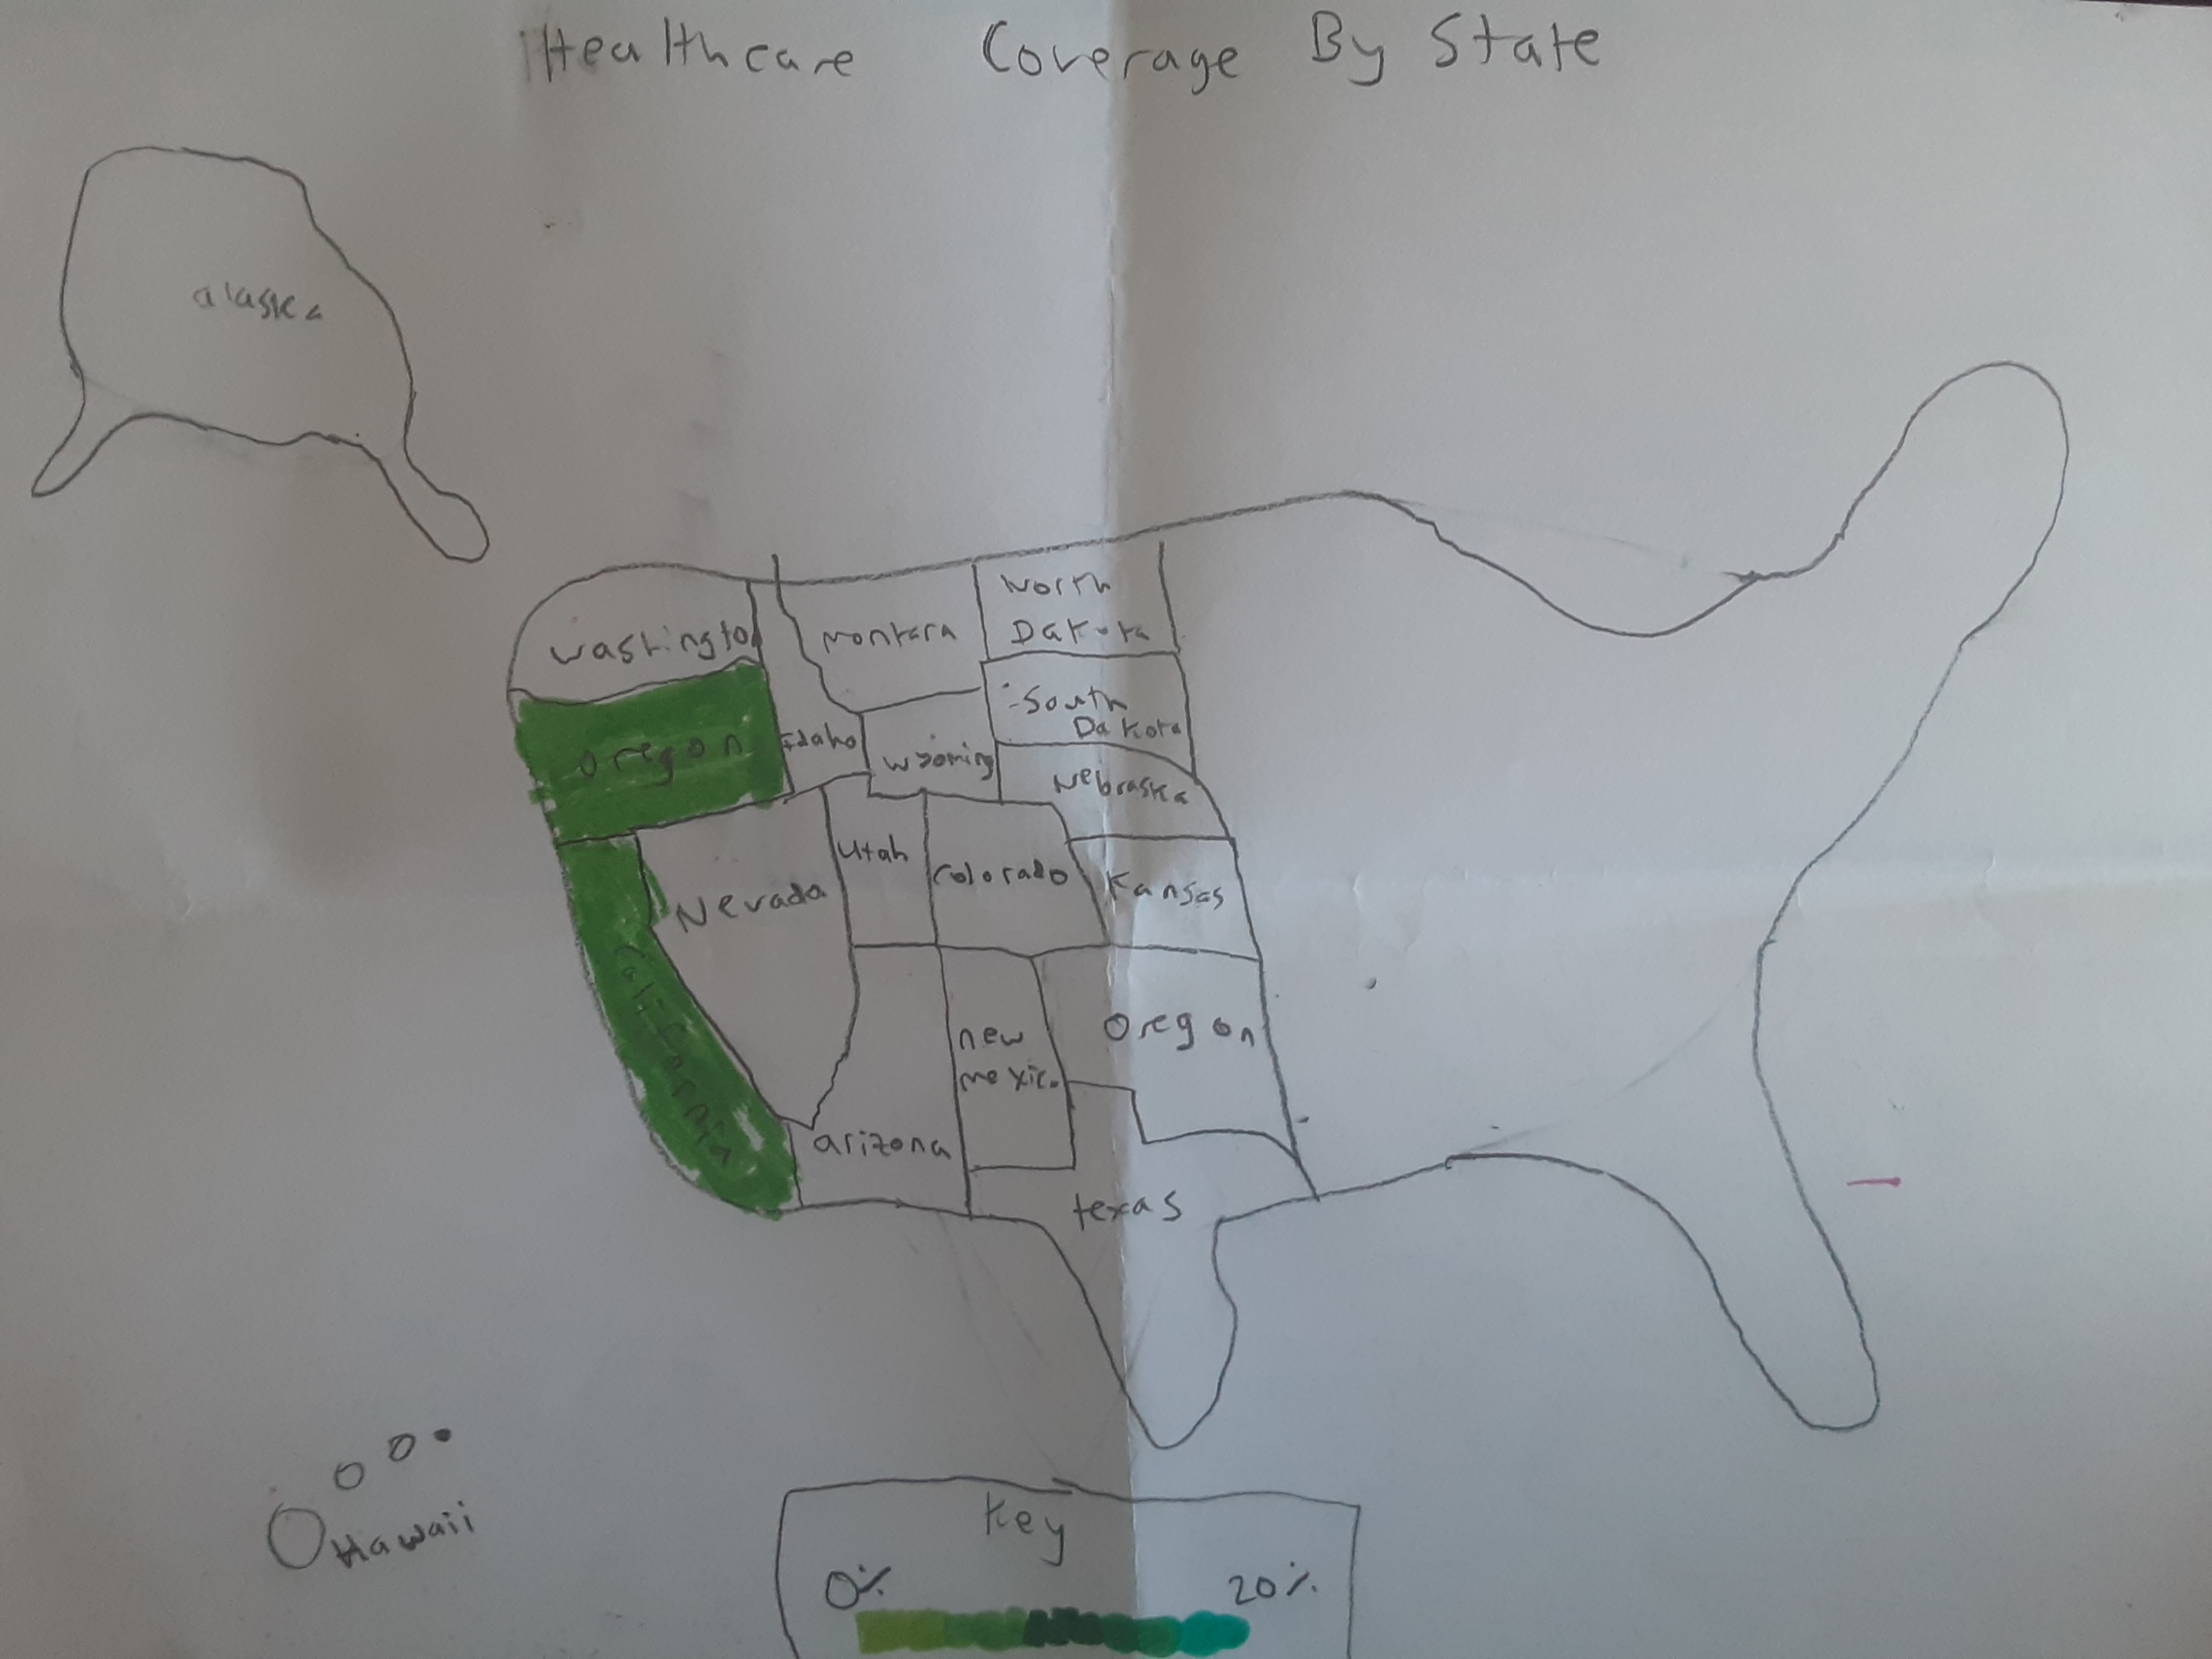 Healthcare Coverage By State
alaska
North
Dakota
Montara
washington
South
Dakota
oregon
Idaho
wyoming
Nebraska
Utah
Colorado
Kansas
Nevada
California
Oregon
new
mexico
arizona
texas
Hawaii
Key
0%
20%